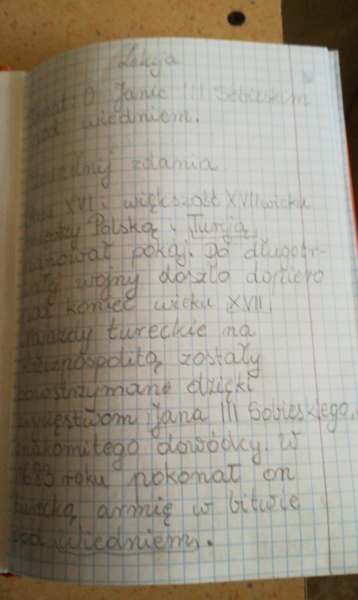 Lekcja
Temat: O Janie III Sobieskim
pod wiedniem.
zdania
XVI i większość XVII wieku
między Polską i Turcją
panował pokój. Do długotr-
wałej wojny doszło dopiero
pod koniec wieku XVII.
Najazdy tureckie na
Rzeczpospolitą zostały
powstrzymane dzięki
zwycięstwom Jana III Sobieskiego,
znakomitego dowódcy. W
1683 roku pokonał on
turecką armię w bitwie
pod wiedniem.